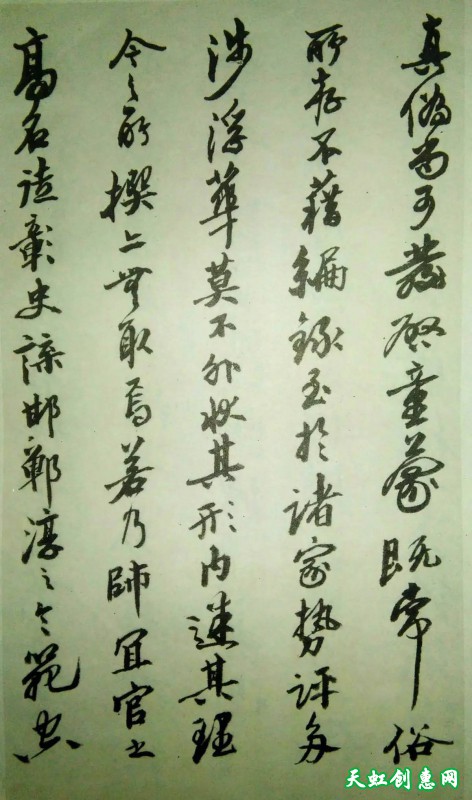 真偽尚可發啓童蒙既常俗
所存不藉編錄至於諸家勢評多
涉浮華莫不外狀其形内迷其理
今之所撰亦無取焉若乃師宜官之
高名徒彰史諜邯鄲淳之令範空
天虹创惠网